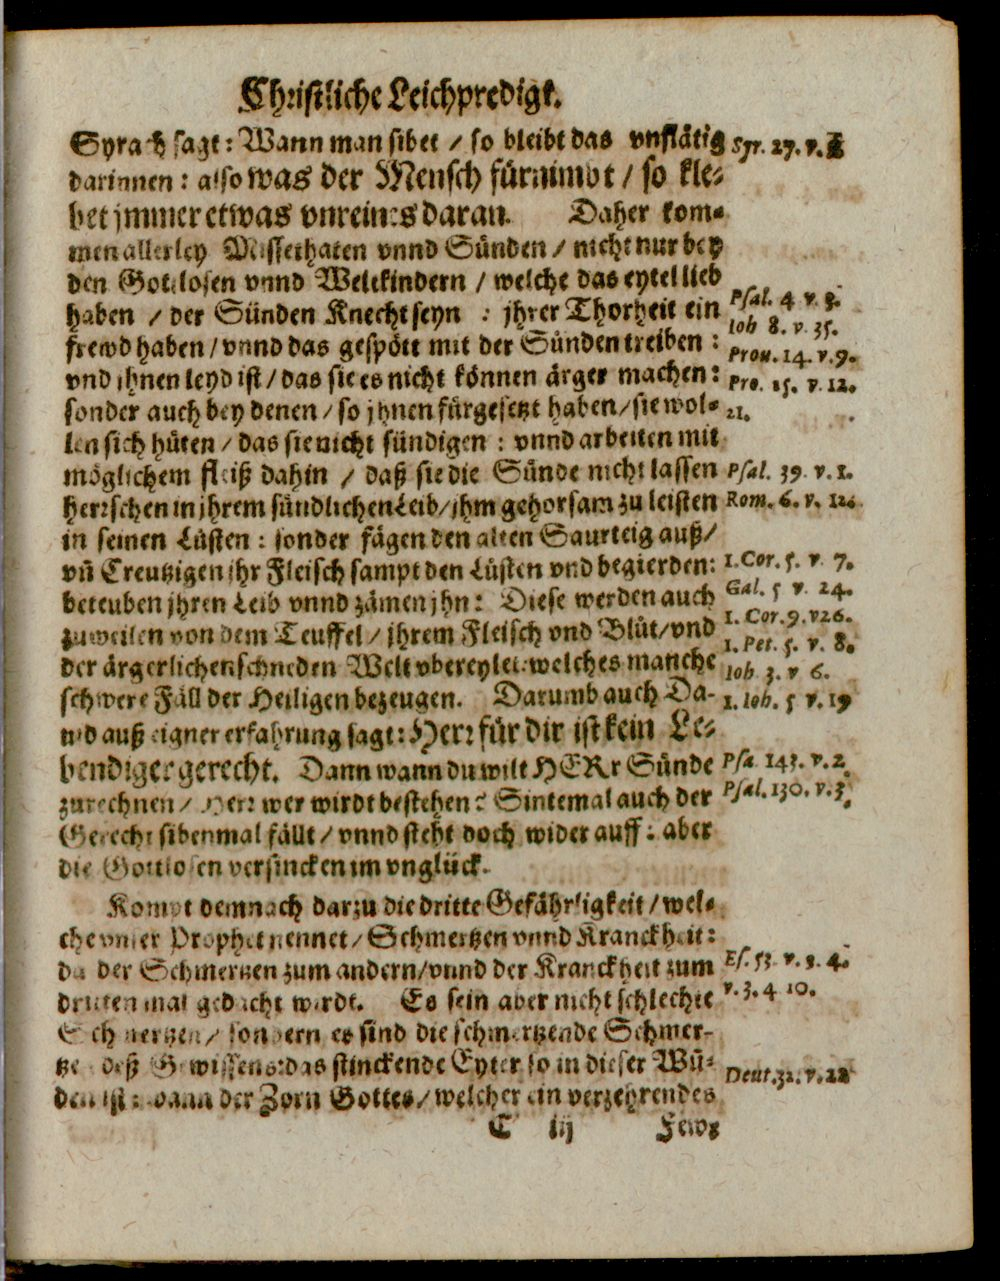 Christliche Leichpredigt.
Syrach sagt: Wann man sibet / so bleibt das vnflätig Syr. 27. v.
darinnen: also was der Mensch fürnimbt / so kle-
bet jmmer etwas vnreines daran. Daher kom-
men allerley Missethaten vnnd Sünden / nicht nur bey
den Gottlosen vnnd Weltkindern / welche das eytel lieb
haben / der Sünden Knecht seyn : jhrer Thorheit ein Psal. 4 v. 3.
frewd haben / vnnd das gespött mit der Sünden treiben : Iob 8. v. 35.
vnd jhnen leyd ist / das sie es nicht können ärger machen: Prou. 14. v. 9.
sonder auch bey denen / so jhnen fürgesetzt haben / sie wol- Pro. 15. v. 12.
len sich hüten / das sie nicht sündigen : vnnd arbeiten mit 21.
möglichem fleiß dahin / daß sie die Sünde nicht lassen Psal. 39. v. 1.
herrschen in jhrem sündlichen Leib / jhm gehorsam zu leisten Rom. 6. v. 12.
in seinen Lüsten : sonder fägen den alten Saurteig auß /
vñ Creutzigen jhr Fleisch sampt den Lüsten vnd begierden: 1. Cor. 5. v. 7.
beteuben jhren Leib vnnd zämen jhn: Diese werden auch Gal. 5 v. 24.
zuweilen von dem Teuffel / jhrem Fleisch vnd Blüt / vnd 1. Cor. 9. v 26.
der ärgerlichen schnöden Welt vbereylet: welches manche 1. Pet. 5. v. 8.
schwere Fäll der Heiligen bezeugen. Darumb auch Da- Iob 3. v 6.
uid auß eigner erfahrung sagt: Herr für dir ist kein Le- 1. Ioh. 5 v. 19
bendiger gerecht. Dann wann du wilt HERr Sünde Psa. 143. v. 2
zurechnen / Herr wer wirdt bestehen? Sintemal auch der Psal. 130. v. 3.
Gerecht sibenmal fällt / vnnd steht doch wider auff: aber
die Gottlosen versincken im vnglück.
Kompt demnach darzu die dritte Gefährligkeit / wel-
che vnser Prophet nennet / Schmertzen vnnd Kranckheit:
da der Schmertzen zum andern / vnnd der Kranckheit zum Es. 53. v. 3. 4.
dritten mal gedacht wirdt. Es sein aber nicht schlechte v. 3. 4 10.
Schmertzen / sondern es sind die schmertzende Schmer-
tzen deß Gewissens: das stinckende Eyter so in dieser Wü-
den ist: dann der Zorn Gottes / welcher ein verzehrendes Deut. 32. v. 22
C iij Few-